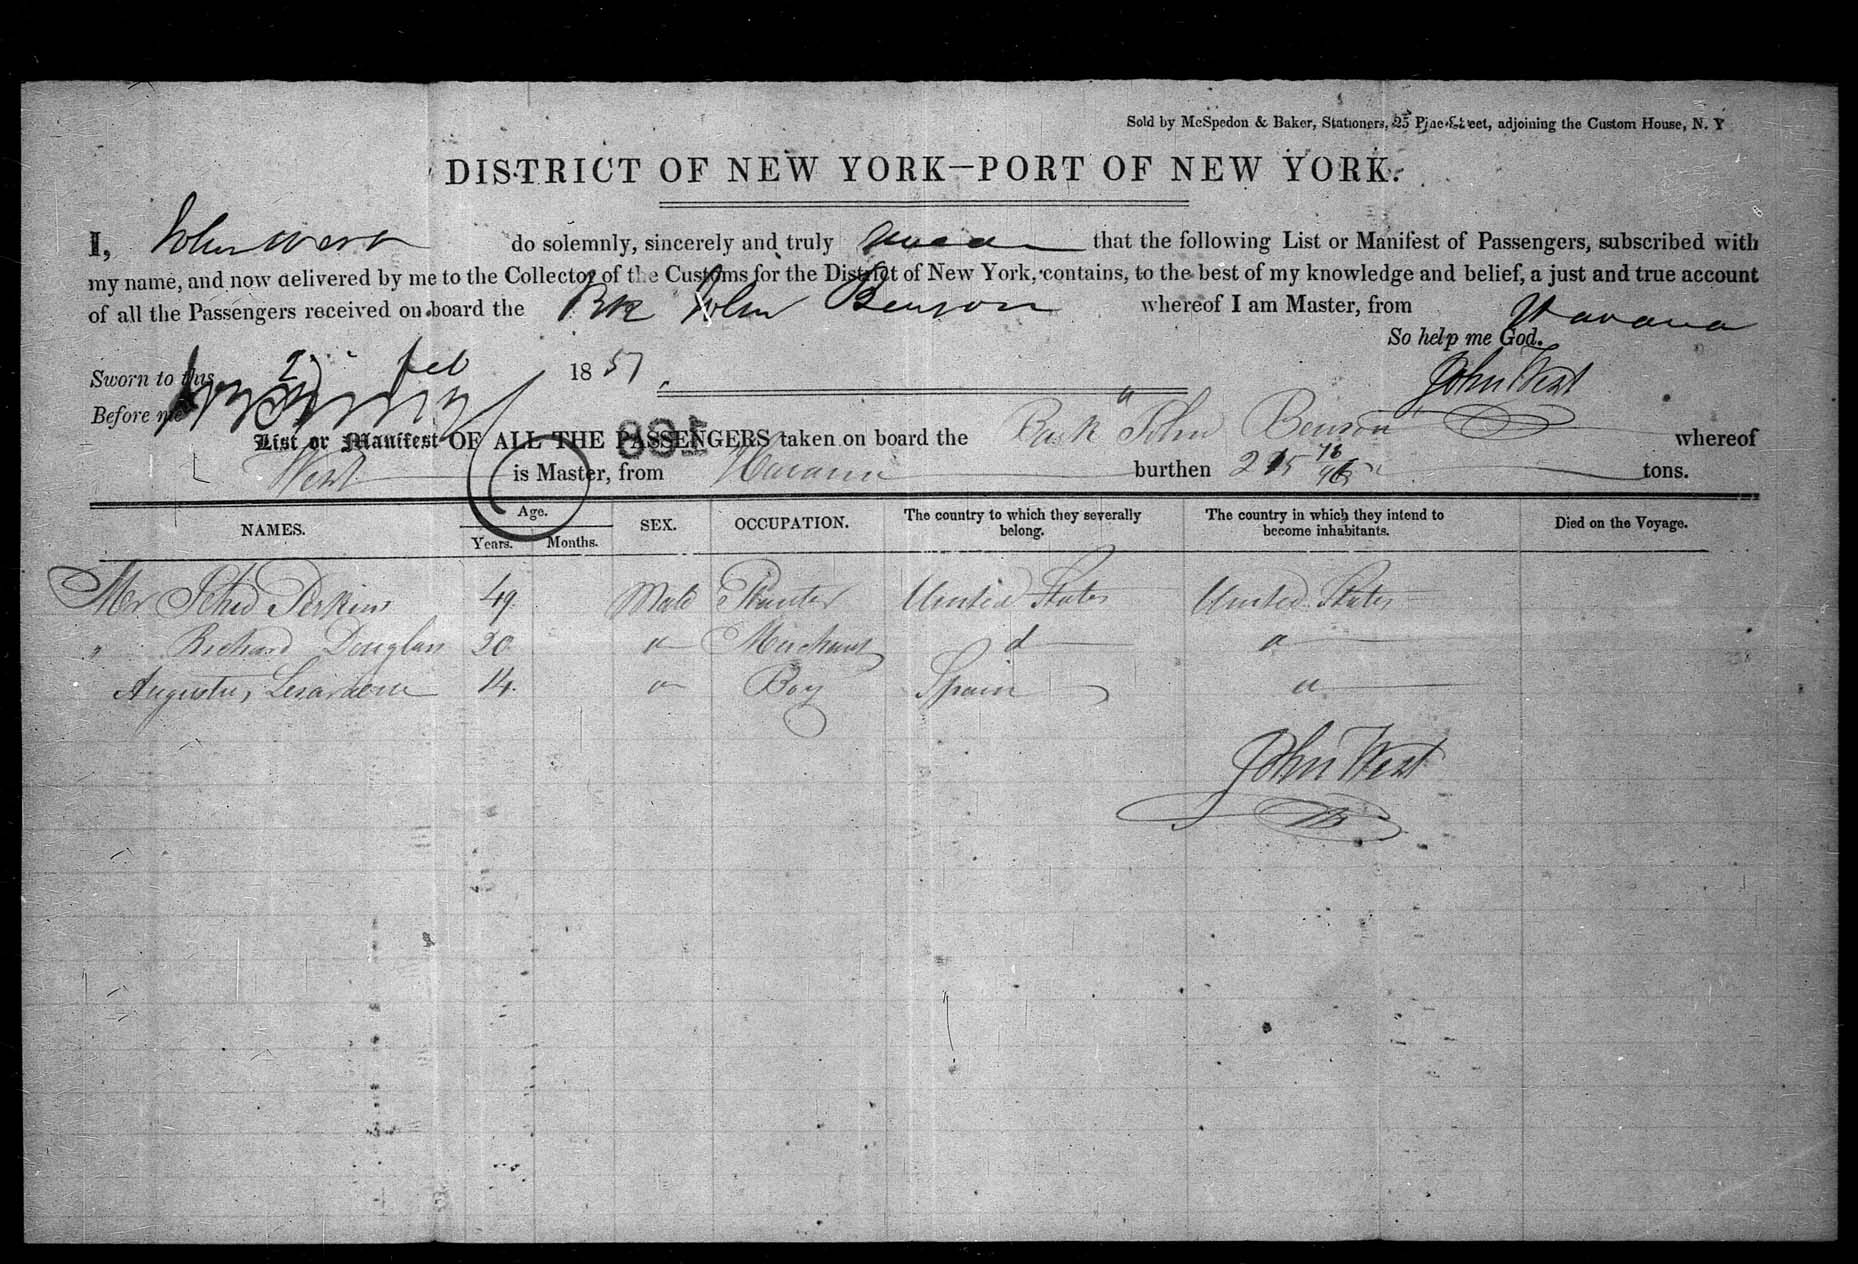 Sold by McSpedon & Baker, Stationers, 25 Pine Street, adjoining the Custom House, N. Y
DISTRICT OF NEW YORK—PORT OF NEW YORK.
I, John West do solemnly, sincerely and truly swear that the following List or Manifest of Passengers, subscribed with
my name, and now delivered by me to the Collector of the Customs for the District of New York, contains, to the best of my knowledge and belief, a just and true account
of all the Passengers received on board the Bk John Benson whereof I am Master, from Havana
So help me God.
Sworn to this 2 feb 1851
John West
Before me
List or Manifest OF ALL THE PASSENGERS taken on board the Bark "John Benson whereof
West is Master, from Havana burthen tons.
NAMES. Age. Years. Months. SEX. OCCUPATION. The country to which they severally belong. The country in which they intend to become inhabitants. Died on the Voyage.
Mr Perkins 49 Male Planter United States United States
" Richard Douglas 30 " Merchant d "
14 " Boy Spain "
John West